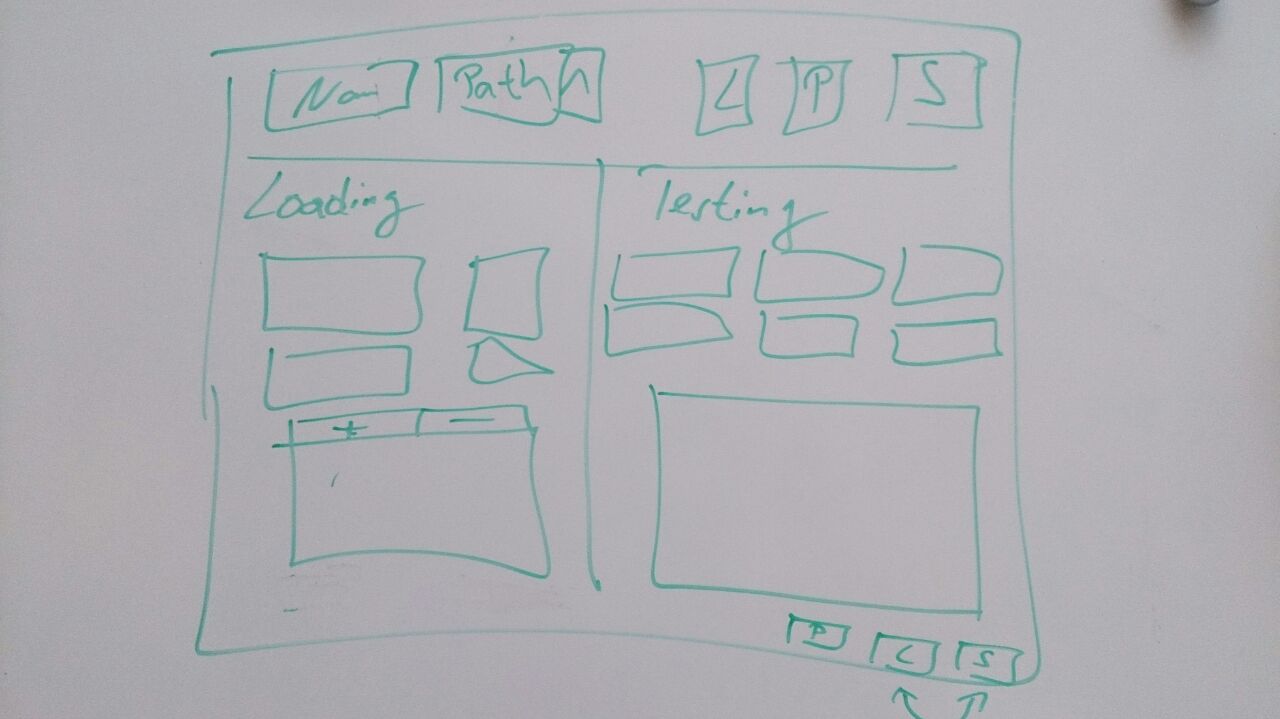 Path L P S
Loading Testing
+ −
P L S